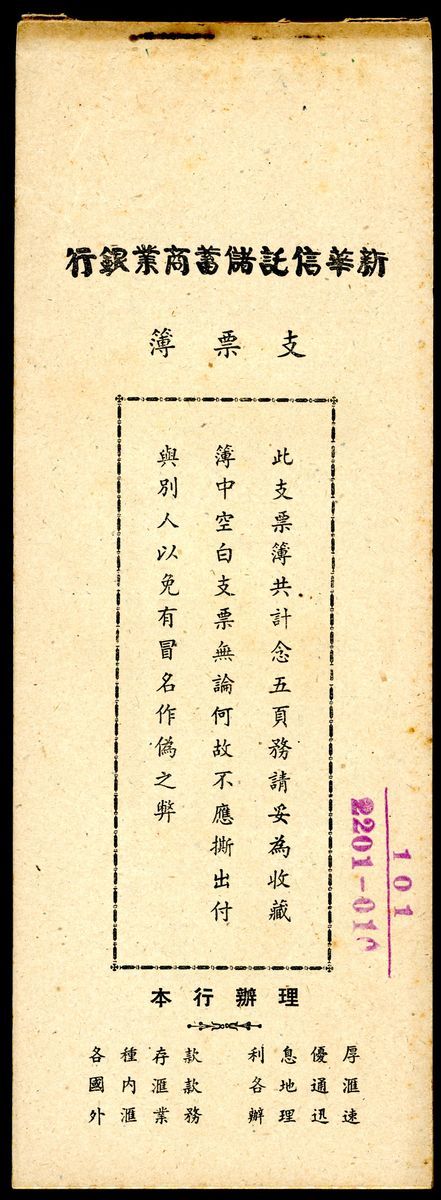 新華信託儲蓄商業銀行
支票簿
此支票簿共計念五頁務請妥為收藏
簿中空白支票無論何故不應撕出付
與別人以免有冒名作偽之弊
101
2201-010
本行辦理
各種存款 利息優厚
國內匯款 各地通匯
外匯業務 辦理迅速